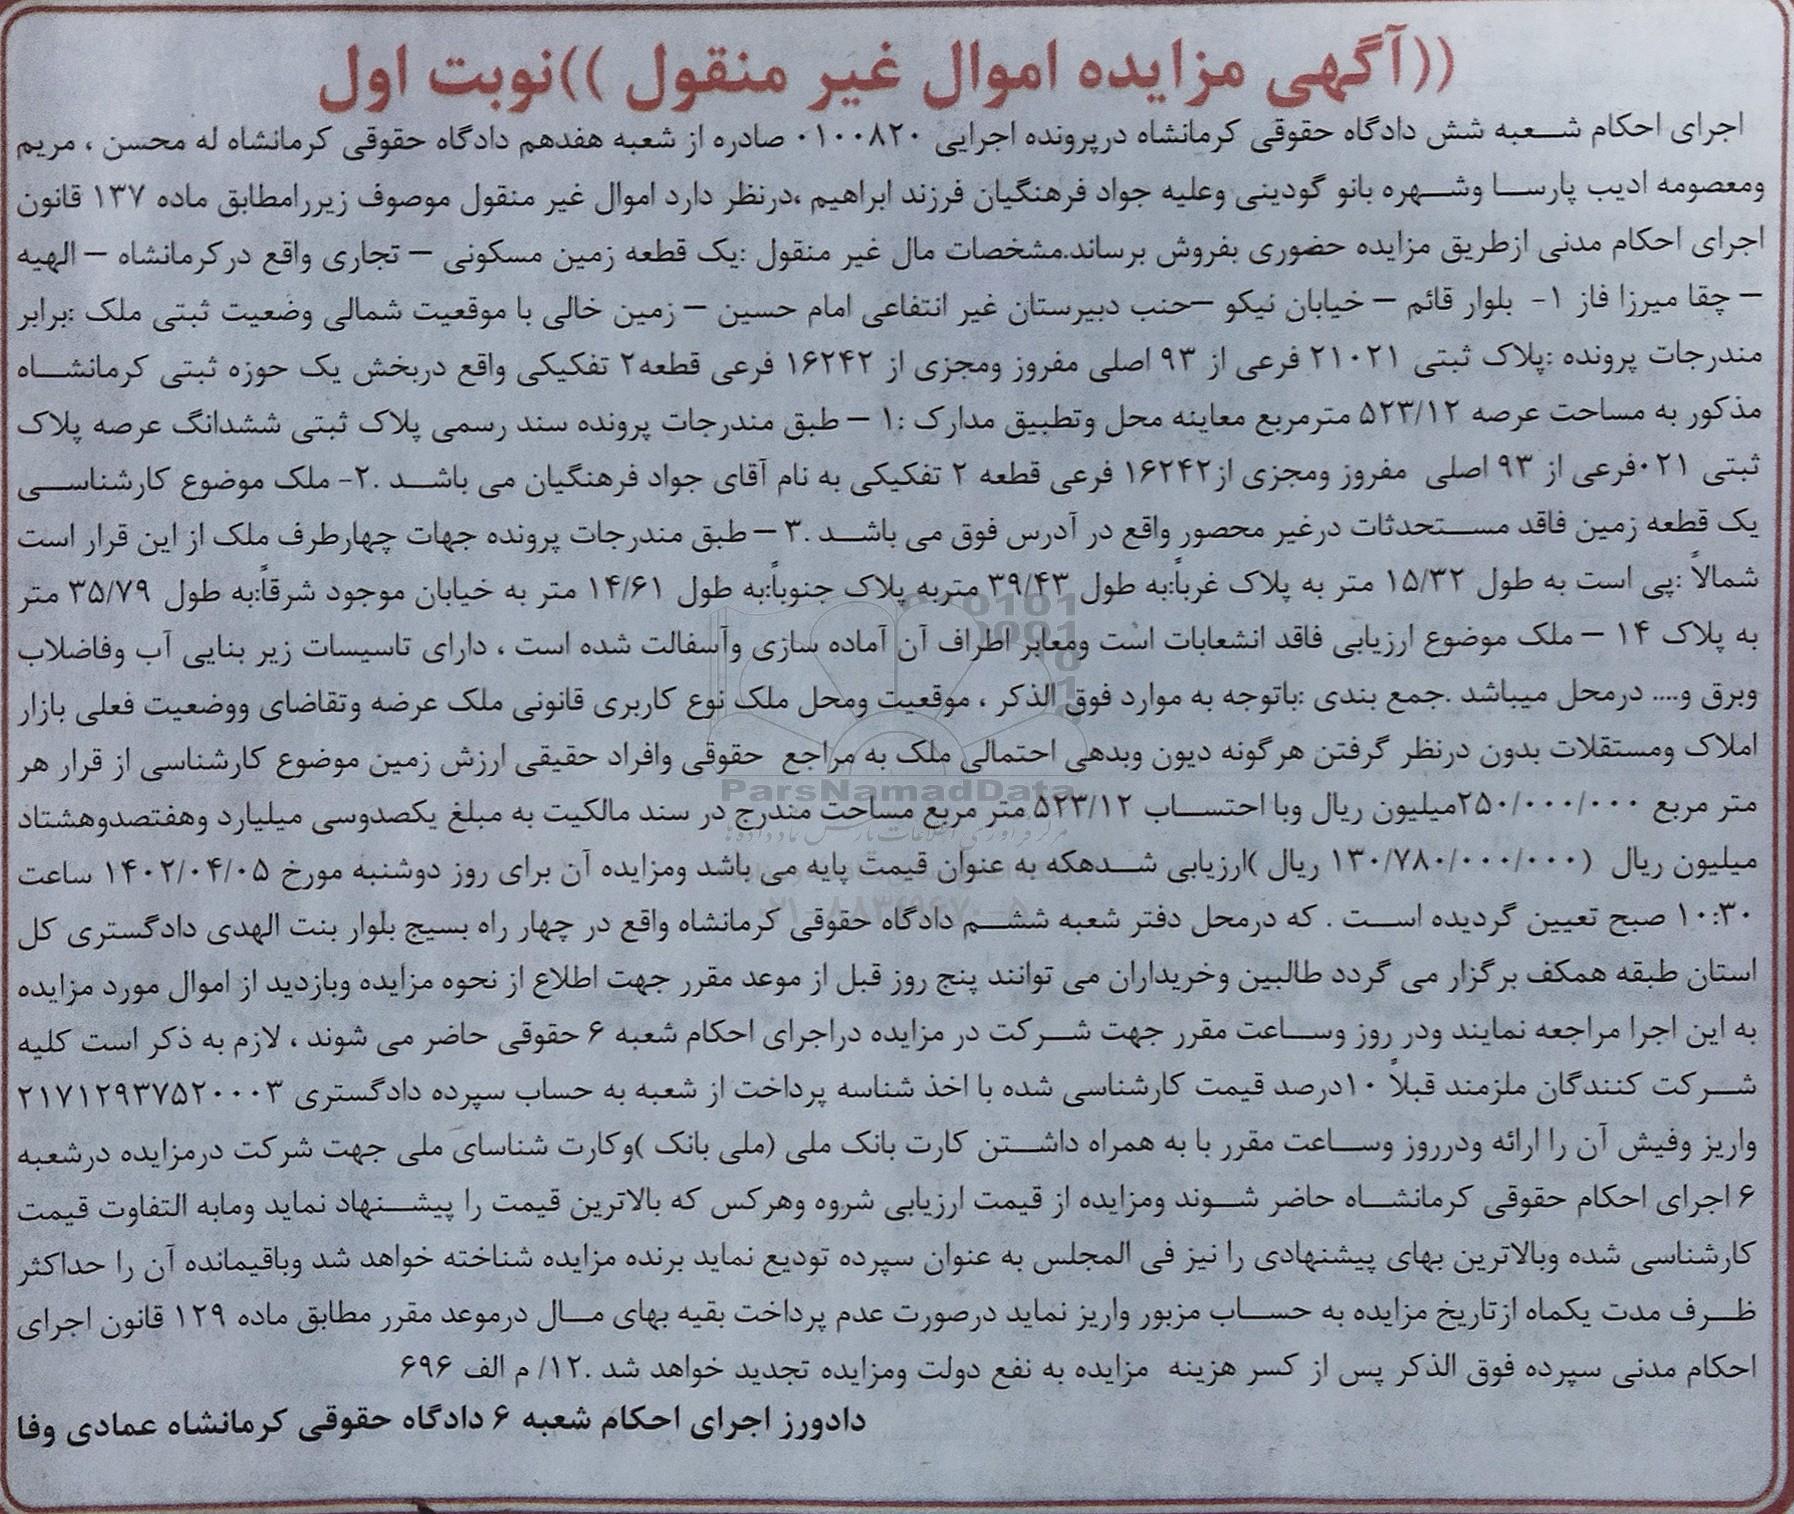 ((آگهی مزایده اموال غیر منقول ))نوبت اول
اجرای احکام شعبه شش دادگاه حقوقی کرمانشاه درپرونده اجرایی ۰۱۰۰۸۲۰ صادره از شعبه هفدهم دادگاه حقوقی کرمانشاه له محسن ، مریم
ومعصومه ادیب پارسا وشهره بانو گودینی وعلیه جواد فرهنگیان فرزند ابراهیم ،درنظر دارد اموال غیر منقول موصوف زیررامطابق ماده ۱۳۷ قانون
اجرای احکام مدنی ازطریق مزایده حضوری بفروش برساند.مشخصات مال غیر منقول :یک قطعه زمین مسکونی – تجاری واقع درکرمانشاه – الهیه
– چقا میرزا فاز ۱- بلوار قائم – خیابان نیکو –حنب دبیرستان غیر انتفاعی امام حسین – زمین خالی با موقعیت شمالی وضعیت ثبتی ملک :برابر
مندرجات پرونده :پلاک ثبتی ۲۱۰۲۱ فرعی از ۹۳ اصلی مفروز ومجزی از ۱۶۲۴۲ فرعی قطعه۲ تفکیکی واقع دربخش یک حوزه ثبتی کرمانشاه
مذکور به مساحت عرصه ۵۲۳/۱۲ مترمربع معاینه محل وتطبیق مدارک :۱ – طبق مندرجات پرونده سند رسمی پلاک ثبتی ششدانگ عرصه پلاک
ثبتی ۰۲۱فرعی از ۹۳ اصلی مفروز ومجزی از۱۶۲۴۲ فرعی قطعه ۲ تفکیکی به نام آقای جواد فرهنگیان می باشد .۲- ملک موضوع کارشناسی
یک قطعه زمین فاقد مستحدثات درغیر محصور واقع در آدرس فوق می باشد .۳ – طبق مندرجات پرونده جهات چهارطرف ملک از این قرار است
شمالاً :پی است به طول ۱۵/۳۲ متر به پلاک غرباً:به طول ۳۹/۴۳ متربه پلاک جنوباً:به طول ۱۴/۶۱ متر به خیابان موجود شرقاً:به طول ۳۵/۷۹ متر
به پلاک ۱۴ – ملک موضوع ارزیابی فاقد انشعابات است ومعابر اطراف آن آماده سازی وآسفالت شده است ، دارای تاسیسات زیر بنایی آب وفاضلاب
وبرق و.... درمحل میباشد .جمع بندی :باتوجه به موارد فوق الذکر ، موقعیت ومحل ملک نوع کاربری قانونی ملک عرضه وتقاضای ووضعیت فعلی بازار
املاک ومستقلات بدون درنظر گرفتن هرگونه دیون وبدهی احتمالی ملک به مراجع حقوقی وافراد حقیقی ارزش زمین موضوع کارشناسی از قرار هر
متر مربع ۲۵۰/۰۰۰/۰۰۰میلیون ریال وبا احتساب ۵۲۳/۱۲ متر مربع مساحت مندرج در سند مالکیت به مبلغ یکصدوسی میلیارد وهفتصدوهشتاد
میلیون ریال (۱۳۰/۷۸۰/۰۰۰/۰۰۰ ریال )ارزیابی شدهکه به عنوان قیمت پایه می باشد ومزایده آن برای روز دوشنبه مورخ ۱۴۰۲/۰۴/۰۵ ساعت
۱۰:۳۰ صبح تعیین گردیده است . که درمحل دفتر شعبه ششم دادگاه حقوقی کرمانشاه واقع در چهار راه بسیج بلوار بنت الهدی دادگستری کل
استان طبقه همکف برگزار می گردد طالبین وخریداران می توانند پنج روز قبل از موعد مقرر جهت اطلاع از نحوه مزایده وبازدید از اموال مورد مزایده
به این اجرا مراجعه نمایند ودر روز وساعت مقرر جهت شرکت در مزایده دراجرای احکام شعبه ۶ حقوقی حاضر می شوند ، لازم به ذکر است کلیه
شرکت کنندگان ملزمند قبلاً ۱۰درصد قیمت کارشناسی شده با اخذ شناسه پرداخت از شعبه به حساب سپرده دادگستری ۲۱۷۱۲۹۳۷۵۲۰۰۰۳
واریز وفیش آن را ارائه ودرروز وساعت مقرر با به همراه داشتن کارت بانک ملی (ملی بانک )وکارت شناسای ملی جهت شرکت درمزایده درشعبه
۶ اجرای احکام حقوقی کرمانشاه حاضر شوند ومزایده از قیمت ارزیابی شروه وهرکس که بالاترین قیمت را پیشنهاد نماید ومابه التفاوت قیمت
کارشناسی شده وبالاترین بهای پیشنهادی را نیز فی المجلس به عنوان سپرده تودیع نماید برنده مزایده شناخته خواهد شد وباقیمانده آن را حداکثر
ظرف مدت یکماه ازتاریخ مزایده به حساب مزبور واریز نماید درصورت عدم پرداخت بقیه بهای مال درموعد مقرر مطابق ماده ۱۲۹ قانون اجرای
احکام مدنی سپرده فوق الذکر پس از کسر هزینه مزایده به نفع دولت ومزایده تجدید خواهد شد .۱۲/ م الف ۶۹۶
دادورز اجرای احکام شعبه ۶ دادگاه حقوقی کرمانشاه عمادی وفا
ParsNamadData